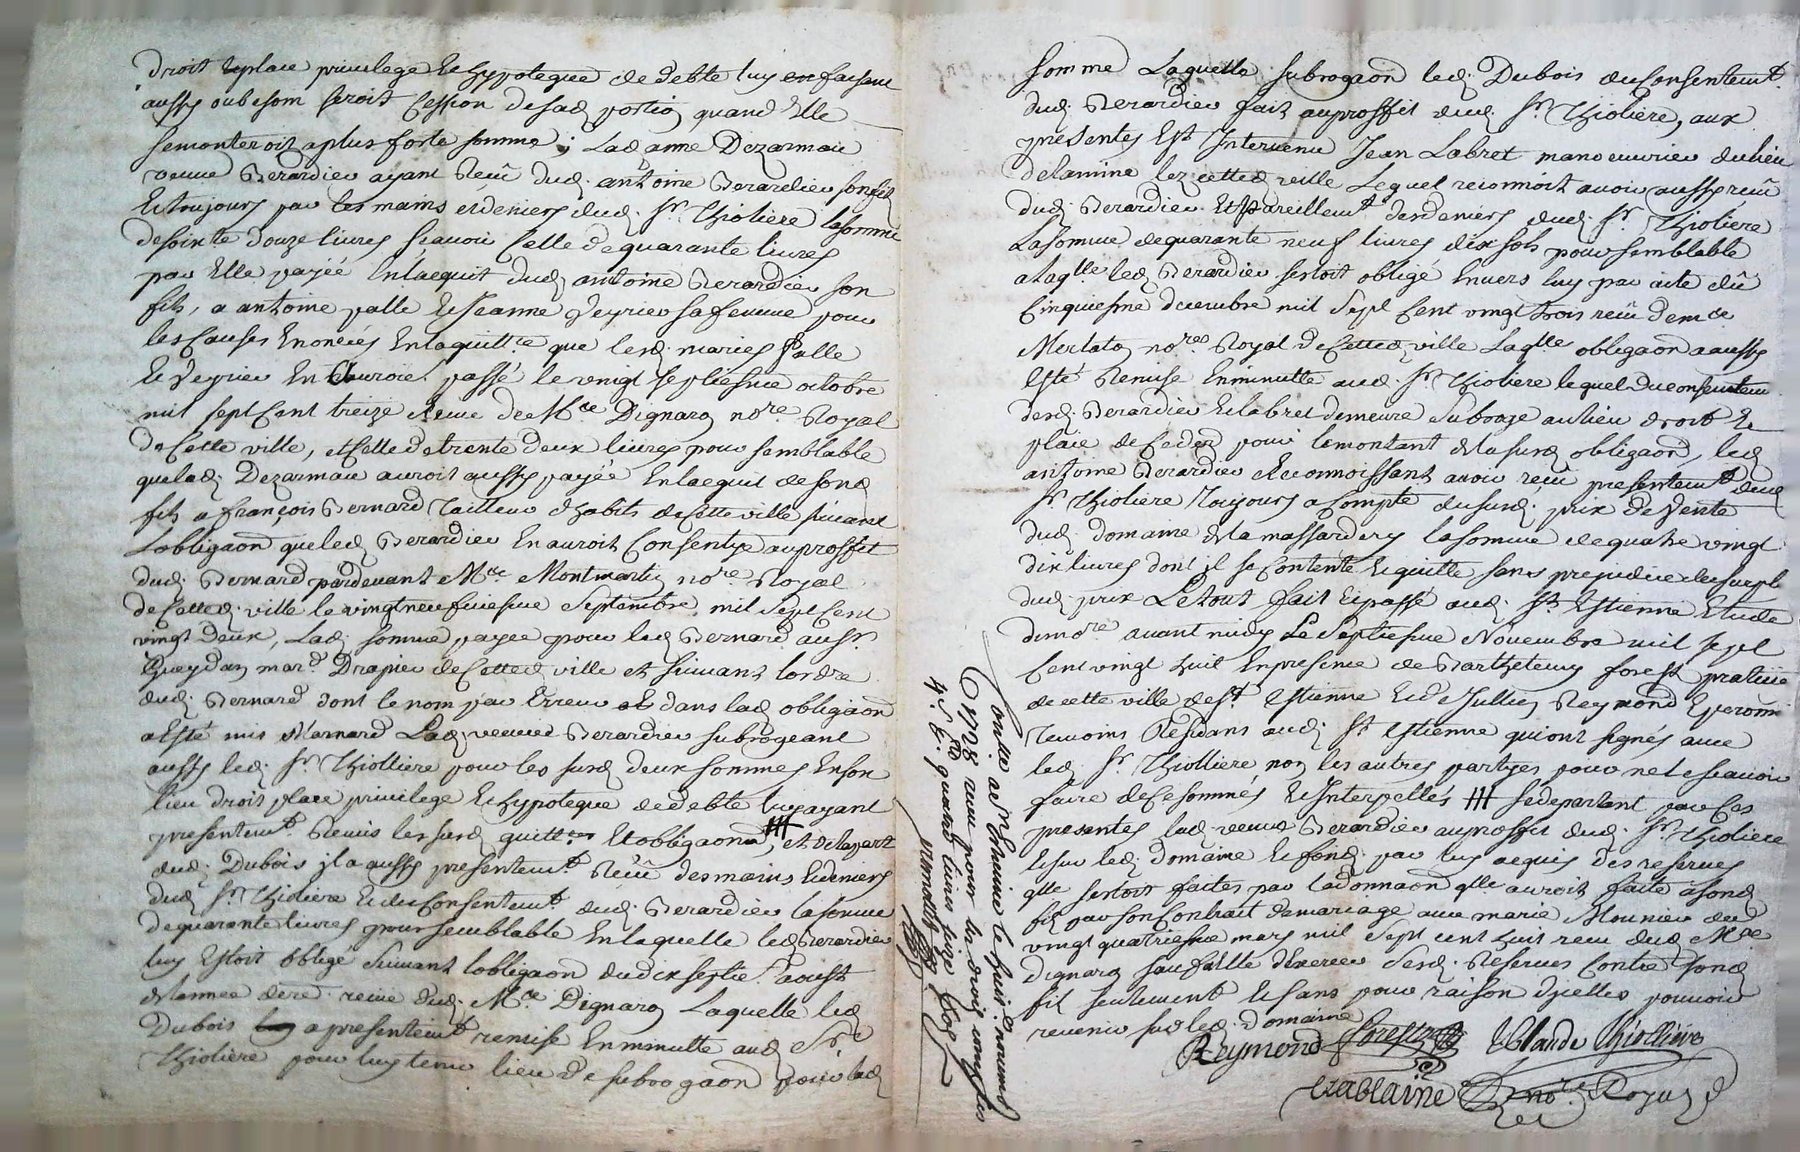 droit & place privilege & hypoteque de debte luy en faisant
aussy ou besoin seroit cession de sad. portion quand Elle
se monteroit a plus forte somme ; Lad. anne Dezarmau
veuve Berardier ayant Reçû dud. antoine Berardier son fils
& toujours par les mains & deniers dud. Sr. Thioliere la somme
de soixante douze livres sçavoir Celle de quarante livres
par Elle payée En l'acquit dud. antoine Berardier son
fils, a antoine palle & Jeanne Veyrier sa femme pour
les Causes Enoncées En la quittce que lesd. mariés Palle
& Veyrier En auroit passé le vingt septiesme octobre
mil sept Cent treize Reçue de Mtre Dignaron nore Royal
de Cette ville, et Celle de trente deux livres pour semblable
que lad. Dezarmau auroit aussy payée En l'acquit de sond.
fils a françois Bernard Tailleur d'habits de Cette ville suivant
L'obligaon que led. Berardier En auroit Consentye au proffit
dud. Bernard pardevant Mtre Montmartin nore Royal
de Cetted. ville le vingt neufviesme Septembre mil Sept Cent
vingt deux, Lad. somme payée pour led. Bernard au Sr.
Queydan mard. Drapier de Cetted. ville et suivant l'ordre
dud. Bernard dont le nom par Erreur dans lad. obligaon
a Esté mis Marnard Lad. veuve Berardier subrogeant
aussy led. Sr. Thiolliere pour les susd. deux sommes En son
lieu droit place privilege & hypoteque de debte luy ayant
presentemt. Remis les susd. quittces Et obligaons, et de la part
dud. Dubois il a aussy presentemt. Reçû des mains & deniers
dud. Sr. Thioliere & du Consentemt. dud. Berardier la somme
de quarante livres pour semblable En laquelle led. Berardier
luy Estoit obligé Suivant l'obligaon du dix septie. aoust
de l'année dere. reçue dud. Mtre Dignaron Laquelle led.
Dubois a presentemt. remise En minutte aud. Sr.
Thioliere pour luy tenir lieu de subrogaon pour lad.
somme Laquelle subrogaon led. Dubois du Consentemt.
dud. Berardier fait au proffit dud. Sr. Thioliere, aux
presentes Est Intervenu Jean Labret manoeuvrier du lieu
lez cetted. ville Lequel reconnoit avoir aussy reçû
dud. Berardier Et pareillemt. des deniers dud. Sr. Thioliere
La somme de quarante neuf livres dix sols pour semblable
a laqlle led. Berardier s'estoit obligé Envers luy par acte du
Cinquiesme decembre mil Sept Cent vingt trois reçû de mtre
Merlaton nore Royal de Cetted. ville Laqlle obligaon a aussy
Esté Remise En minutte aud. Sr. Thioliere lequel du consentemt
desd. Berardier & Labret demeure Subrogé au lieu droit &
place de Ced. pour le montant de la susd. obligaon, led.
antoine Berardier Reconnoissant avoir reçû presentemt. dud.
Sr. Thioliere Toujours a Compte du susd. prix de Vente
dud. domaine de la massardery la somme de quatre vingt
dix livres dont il se Contente & quitte sans prejudice du surpl.
dud. prix Le tout fait & passé aud. St. Estienne Etude
dud. nore avant midy Le Septiesme Novembre mil Sept
Cent vingt huit En presence de Barthelemy forest praticie
de cette ville de St. Estienne & de Jullien Reymond Eperonni
Temoins Residans aud. St. Estienne qui ont signés avec
led. Sr. Thiolliere non les autres partyes pour ne le sçavoir
faire de Ce sommés & Interpellés # se departant par Ces
presentes lad. veuve Berardier au proffit dud. Sr. Thioliere
& sur led. domaine & fond. par luy acquis des reserves
qlle s'estoit faites par la donnaon qlle auroit faite a sond.
fils par son Contrait de mariage avec marie Mounier du
vingt quatriesme mars mil Sept cent huit reçu dud. Mtre
Dignaron sauf a Elle d'Exercer Sesd. Reserves Contre sond.
fils seulement & sans pour raison d'icelles pouvoir
revenir sur led. domaine
Reymond forest Claude Thiolliere
Chablaine nore Royal
Conlle a St Estienne le huit novemb.
1728 reçu pour les droits
quarante livres seize sols